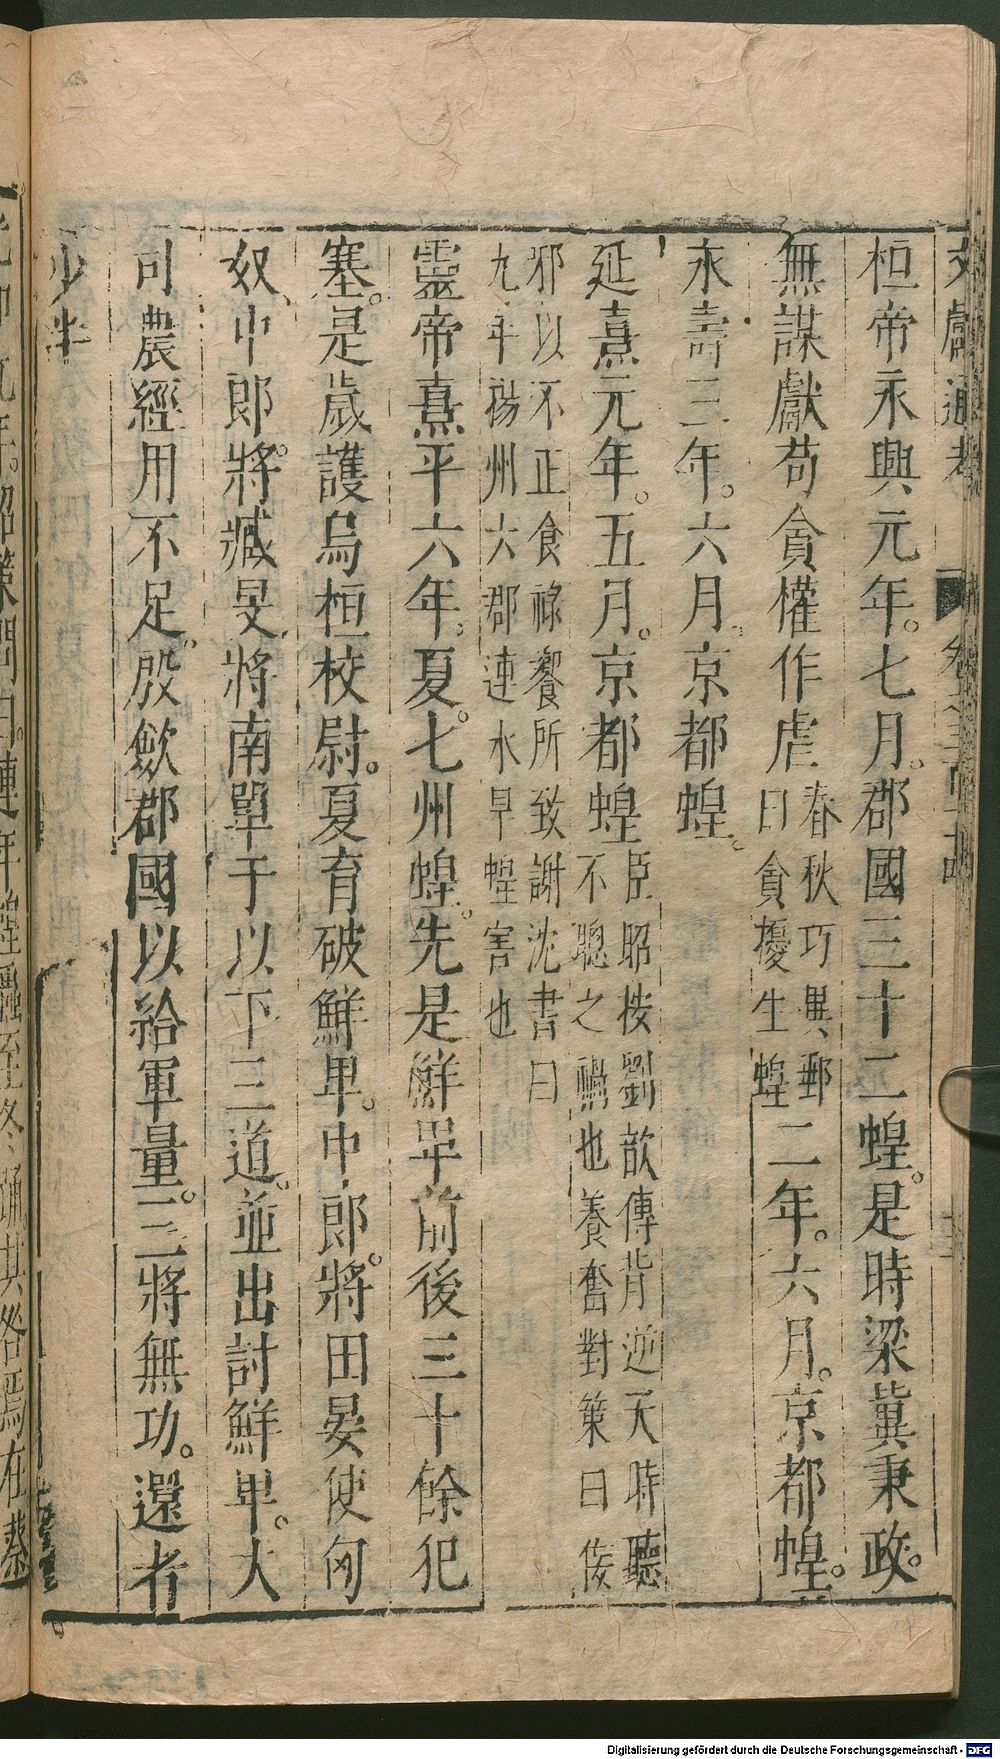 文獻通考 卷三百十四
桓帝永興元年。七月。郡國三十二蝗。是時梁冀秉政。
無謀獻苟貪權作虐 春秋巧異郵
曰貪擾生蝗 二年。六月。京都蝗。
永壽三年。六月。京都蝗。
延熹元年。五月。京都蝗 臣昭按劉歆傳背逆天時聽
不聰之禍也養奮對策曰佞
邪以不正食祿饗所致謝沈書曰
九年揚州六郡連水旱蝗害也
靈帝熹平六年。夏。七州蝗。先是鮮卑前後三十餘犯
塞。是歲護烏桓校尉。夏育破鮮卑。中郎。將田晏使匈
奴、中郎將。臧旻、將南單于以下三道。並出討鮮卑。大
司農經用不足。殷斂郡國以給軍量。三將無功。還者
少半
Digitalisierung gefördert durch die Deutsche Forschungsgemeinschaft - DFG